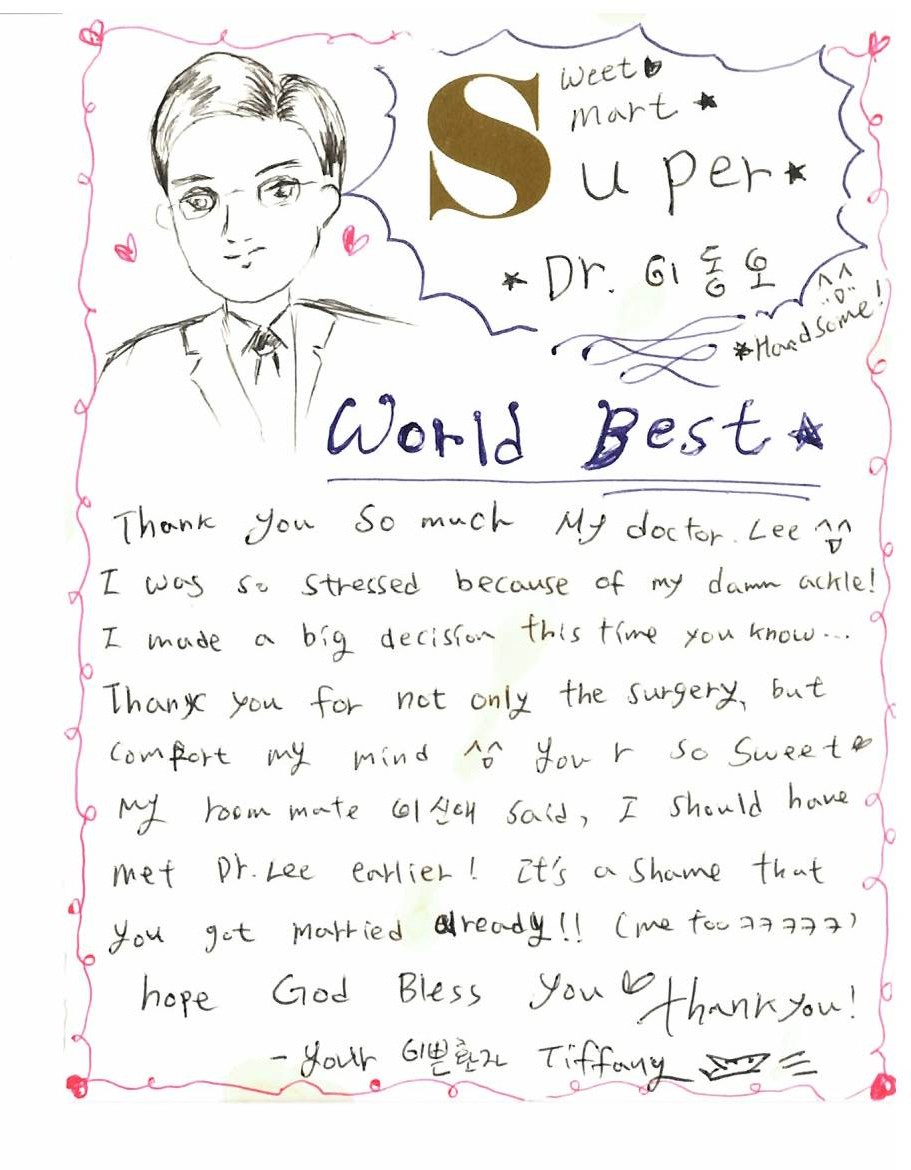 Sweet
mart
uper
Dr. 이동오
Handsome!
World Best
Thank you so much My doctor. Lee ^^
I was so stressed because of my damn ackle!
I made a big decision this time you know...
Thank you for not only the surgery, but
comfort my mind ^^ you r so sweet
My room mate 이신애 said, I should have
met Dr. Lee earlier! It's a shame that
you got married already!! (me too ㅋㅋㅋㅋㅋ)
hope God Bless you thank you!
- your 이쁜환자 Tiffany